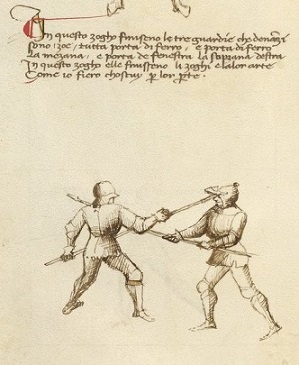 In questo zogho finisseno le tre guardie che denançi
sono zoe, tutta porta di ferro, e porta di ferro
la mezana, e porta de fenestra la soprana destra
In questo zogho elle finisseno li zoghi e la lor arte
Come io fiero chostuy per lor parte.